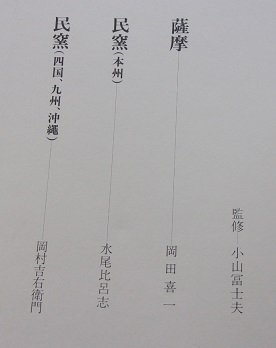 監修　小山冨士夫
薩摩──岡田喜一
民窯（本州）──水尾比呂志
民窯（四国、九州、沖縄）──岡村吉右衛門